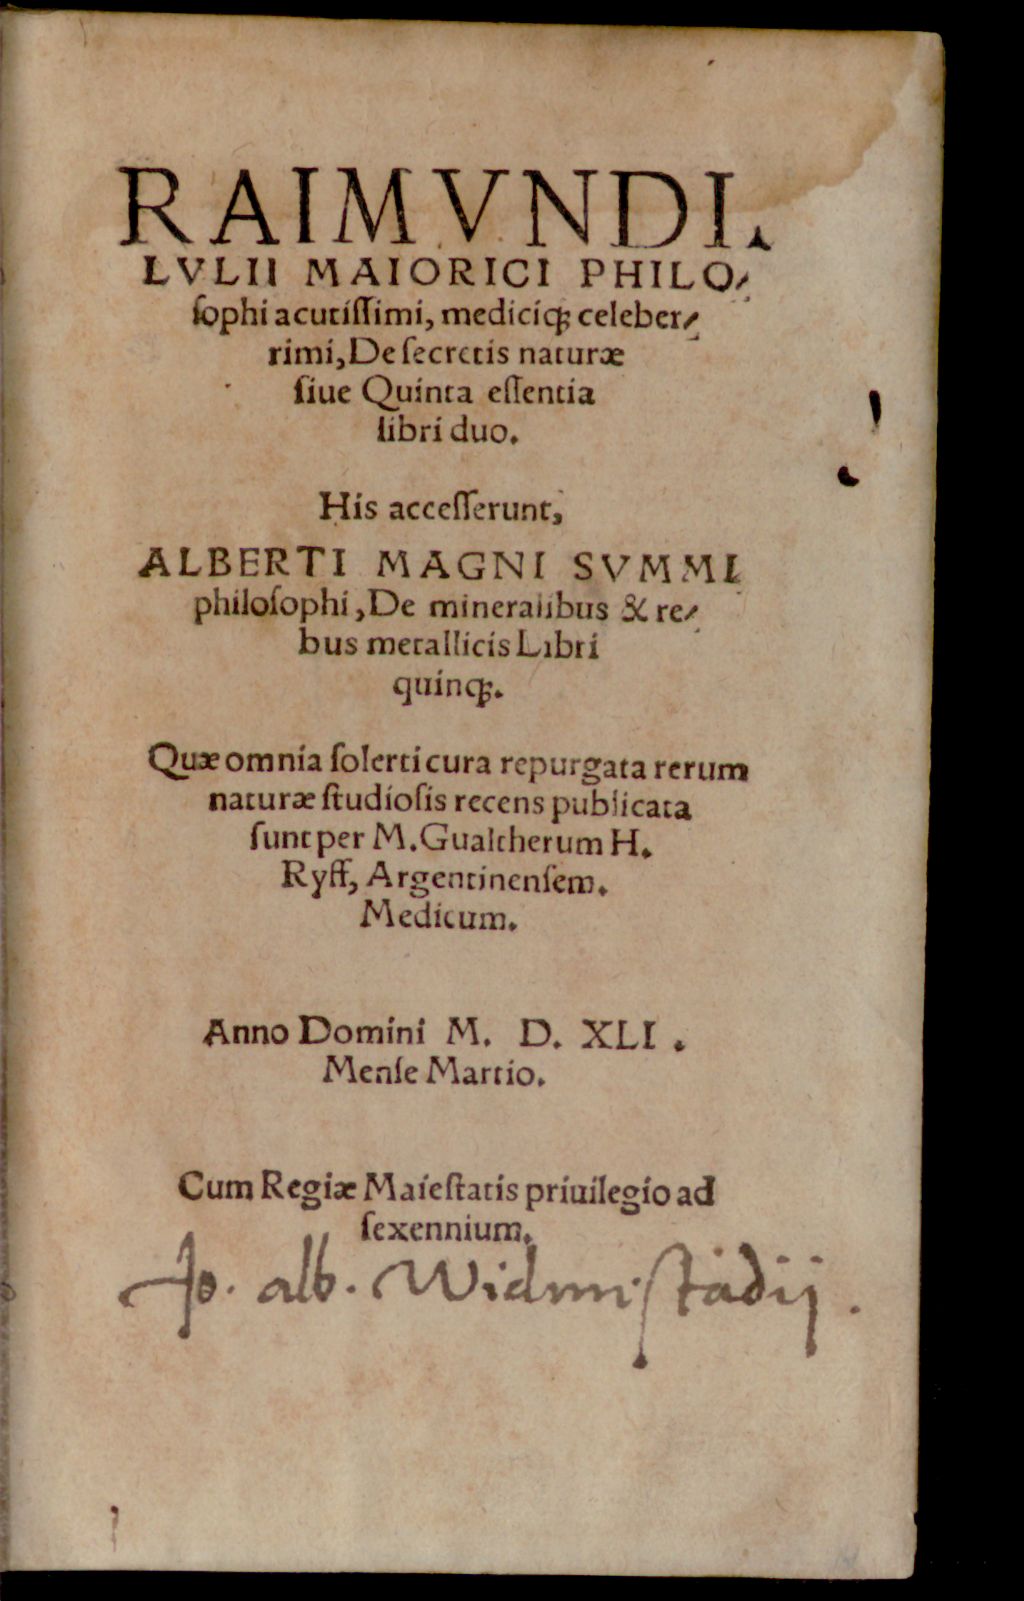 RAIMVNDI
LVLII MAIORICI PHILO⸗
ſophi acutiſſimi, mediciq́; celeber⸗
rimi, De ſecretis naturæ
ſiue Quinta eſſentia
libri duo.
His acceſſerunt,
ALBERTI MAGNI SVMMI
philoſophi, De mineralibus & re⸗
bus metallicis Libri
quinq́;.
Quæ omnia ſolerti cura repurgata rerum
naturæ ſtudioſis recens publicata
ſunt per M. Gualtherum H.
Ryff, Argentinenſem.
Medicum.
Anno Domini M. D. XLI.
Menſe Martio.
Cum Regiæ Maieſtatis priuilegio ad
ſexennium.
Jo. alb. Widmſtadij.